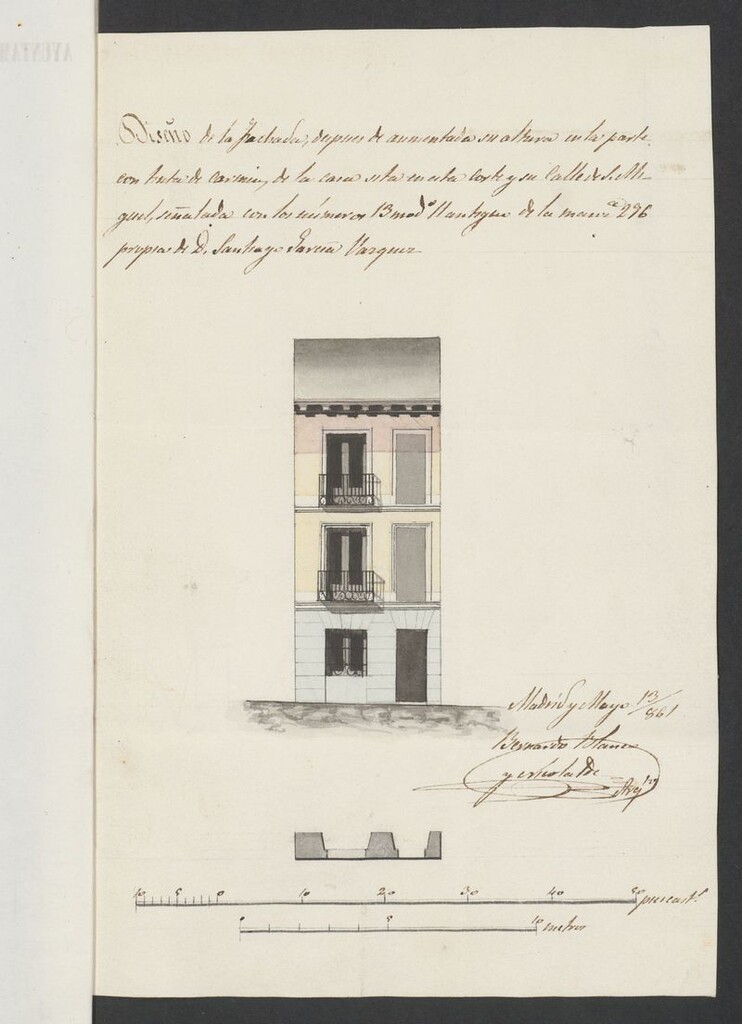 Diseño de la fachada, despues de aumentada su altura en la parte
con tinta de carmin, de la casa sita en esta corte y su Calle de S. Mi-
guel, señalada con los números 13 modº 11 antiguo de la manzª 296
propia de D. Santiago Garcia Vazquez
Madrid y Mayo 13/861
Bernardo Blanco
y
Arqto
10 5 0 10 20 30 40 50 pies castˢ
0 5 10 metros
AYUNTAM